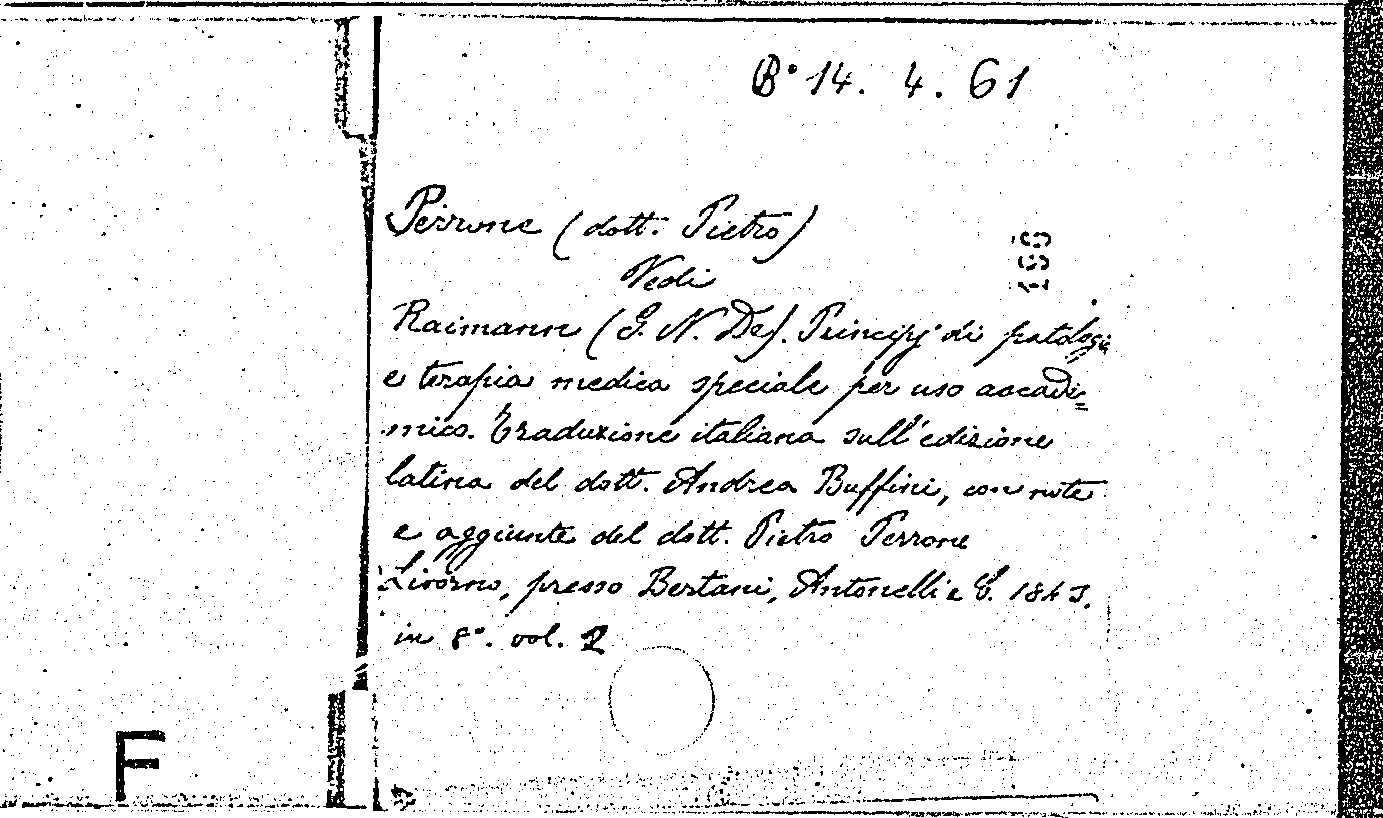 B° 14. 4. 61
Perrone (dott. Pietro)
Vedi
Raimann (G. N. De). Principj di patologia
e terapia medica speciale per uso accade=
mico. Traduzione italiana sull'edizione
latina del dott. Andrea Buffini, con note
e aggiunte del dott. Pietro Perrone
Livorno, presso Bertani, Antonelli e C. 1843.
in 8°. vol. 2
F